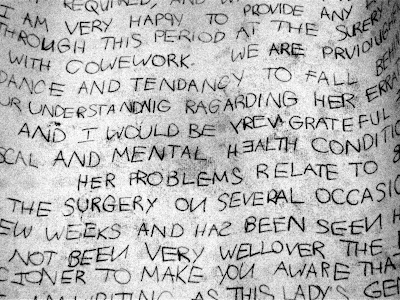 REQUIRED, AND W
I AM VERY HAPPY TO PROVIDE ANY
THROUGH THIS PERIOD AT THE SURERY
WITH COWEWORK. WE ARE PRVIDIUG
DANCE AND TENDANCY TO FALL BEHIN
UR UNDERSTANDNIG RAGARDING HER ERRA
AND I WOULD BE VREVA GRATEFUL
SCAL AND MENTAL HEALTH CONDITIO
HER PROBLEMS RELATE TO
THE SURGERY ON SEVERAL OCCASIO
EW WEEKS AND HAZ BEEN SEEN H
NOT BEEN VERY WELLOVER THE
IONER TO MAKE YOU AWARE THA
I AM WRITING AS THIS LADY'S GE